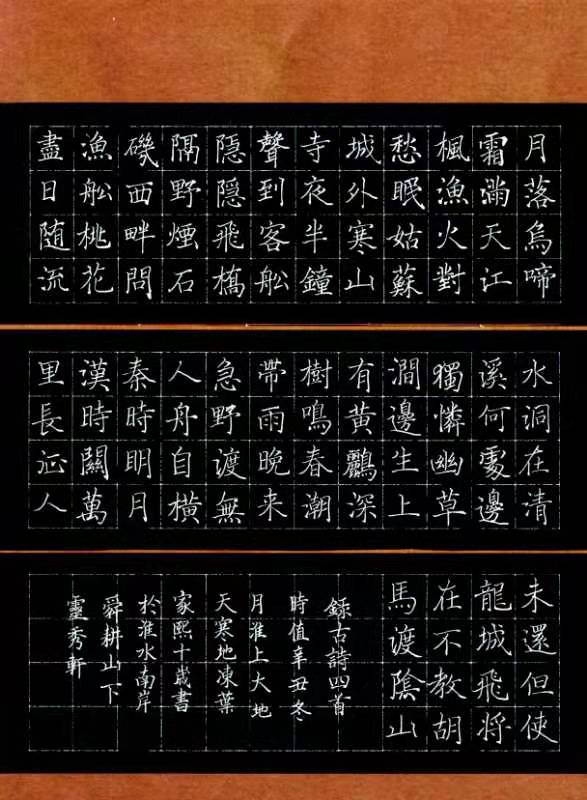 月落烏啼
霜滿天江
楓漁火對
愁眠姑蘇
城外寒山
寺夜半鐘
聲到客船
隱隱飛橋
隔野煙石
磯西畔問
漁船桃花
盡日随流
水洞在清
溪何處邊
獨憐幽草
澗邊生上
有黄鸝深
樹鳴春潮
帶雨晚来
急野渡無
人舟自橫
秦時明月
漢時關萬
里長征人
未還但使
龍城飛将
在不教胡
馬渡陰山
錄古詩四首
時值辛丑冬
月淮上大地
天寒地凍葉
家熙十歲書
於淮水南岸
舜耕山下
靈秀軒